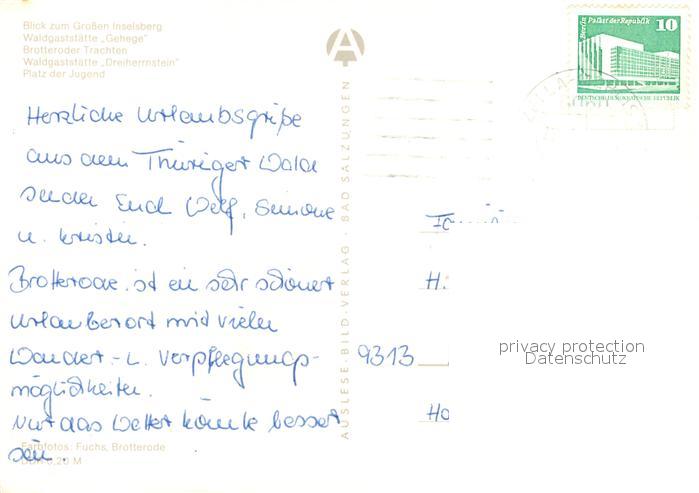 Blick zum Großen Inselsberg
Waldgaststätte „Gehege“
Brotteroder Trachten
Waldgaststätte „Dreiherrnstein“
Platz der Jugend
Berlin Palast der Republik 10
DEUTSCHE DEMOKRATISCHE REPUBLIK
Herzliche Urlaubsgrüße
aus dem Thüringer Wald
senden Euch Welf, Simone
u. Kristin.
Brotterode ist ein sehr schöner
Urlauberort mit vielen
Wander- u. Verpflegungs-
möglichkeiten.
Nur das Wetter könnte besser
sein.
Farbfotos: Fuchs, Brotterode
DDR 0,20 M
AUSLESE-BILD-VERLAG · BAD SALZUNGEN
H.
9313
Ho
privacy protection
Datenschutz